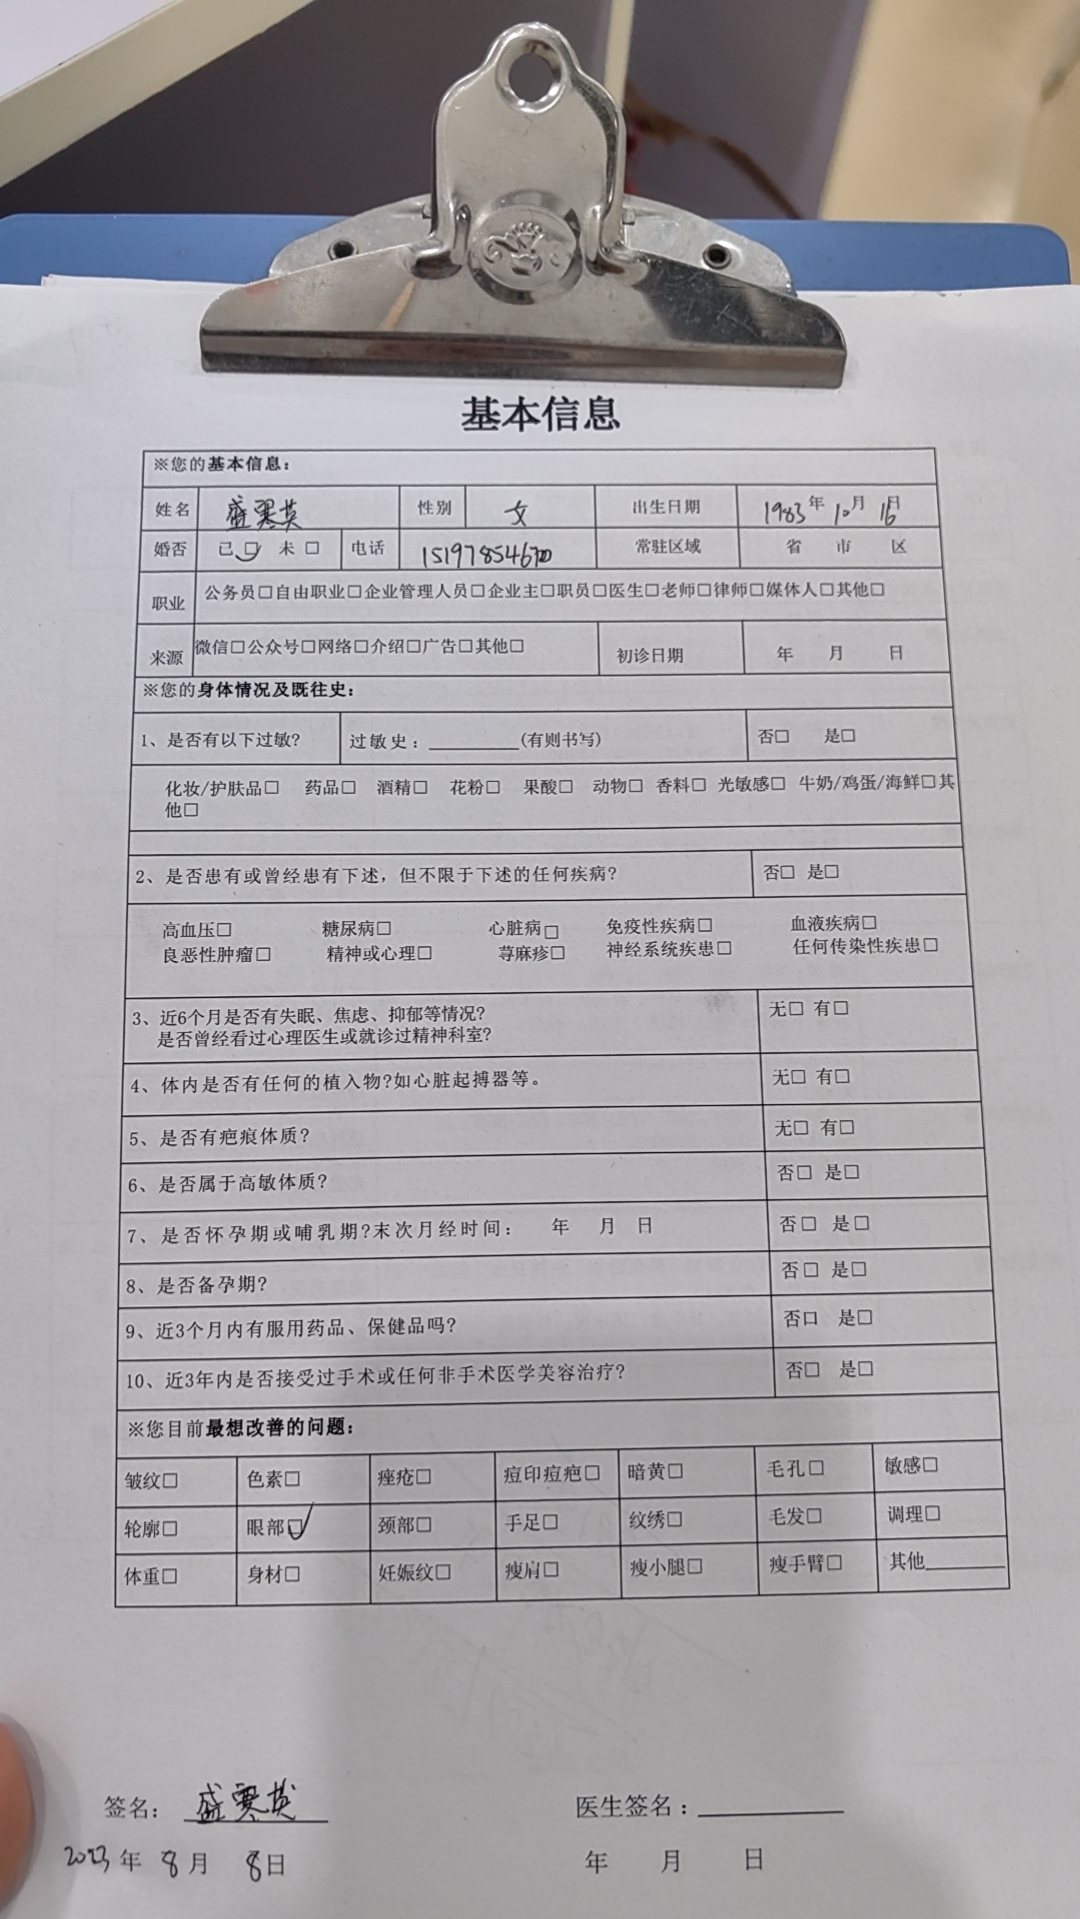 基本信息
※您的基本信息：
姓名 盛寒英 性别 女 出生日期 1983年10月16日
婚否 已☑ 未□ 电话 常驻区域 省 市 区
职业 公务员□自由职业□企业管理人员□企业主□职员□医生□老师□律师□媒体人□其他□
来源 微信□公众号□网络□介绍□广告□其他□ 初诊日期 年 月 日
※您的身体情况及既往史：
1、是否有以下过敏? 过敏史：________(有则书写) 否□ 是□
化妆/护肤品□ 药品□ 酒精□ 花粉□ 果酸□ 动物□ 香料□ 光敏感□ 牛奶/鸡蛋/海鲜□其
他□
2、是否患有或曾经患有下述，但不限于下述的任何疾病? 否□ 是□
高血压□ 糖尿病□ 心脏病□ 免疫性疾病□ 血液疾病□
良恶性肿瘤□ 精神或心理□ 荨麻疹□ 神经系统疾患□ 任何传染性疾患□
3、近6个月是否有失眠、焦虑、抑郁等情况? 无□ 有□
是否曾经看过心理医生或就诊过精神科室?
4、体内是否有任何的植入物?如心脏起搏器等。 无□ 有□
5、是否有疤痕体质? 无□ 有□
6、是否属于高敏体质? 否□ 是□
7、是否怀孕期或哺乳期?末次月经时间： 年 月 日 否□ 是□
8、是否备孕期? 否□ 是□
9、近3个月内有服用药品、保健品吗? 否口 是□
10、近3年内是否接受过手术或任何非手术医学美容治疗? 否□ 是□
※您目前最想改善的问题：
皱纹□ 色素□ 痤疮□ 痘印痘疤□ 暗黄□ 毛孔□ 敏感□
轮廓□ 眼部☑ 颈部□ 手足□ 纹绣□ 毛发□ 调理□
体重□ 身材□ 妊娠纹□ 瘦肩□ 瘦小腿□ 瘦手臂□ 其他______
签名： 盛寒英 医生签名：________
2023年 8月 8日 年 月 日